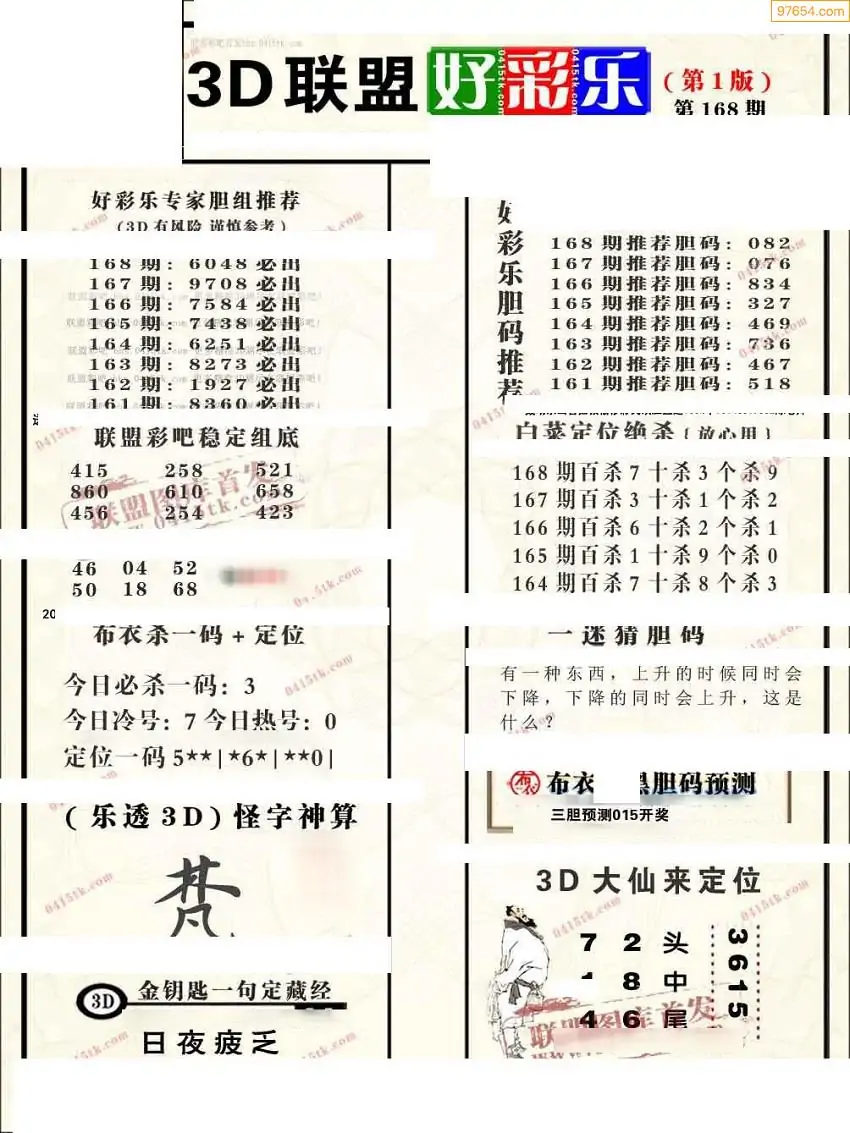 97654.com
3D联盟好彩乐(第1版)
第168期
好彩乐专家胆组推荐
(3D有风险 谨慎参考)
168期:6048必出
167期:9708必出
166期:7584必出
165期:7438必出
164期:6251必出
163期:8273必出
162期:1927必出
161期:8360必出
联盟彩吧稳定组底
415 258 521
860 610 658
456 254 423
46 04 52
50 18 68
20
布衣杀一码+定位
今日必杀一码:3
今日冷号:7 今日热号:0
定位一码 5**|*6*|**0|
(乐透3D)怪字神算
梵
3D 金钥匙一句定藏经
日夜疲乏
好彩乐胆码推荐
168期推荐胆码:082
167期推荐胆码:076
166期推荐胆码:834
165期推荐胆码:327
164期推荐胆码:469
163期推荐胆码:736
162期推荐胆码:467
161期推荐胆码:518
白菜定位绝杀{放心用}
168期百杀7十杀3个杀9
167期百杀3十杀1个杀2
166期百杀6十杀2个杀1
165期百杀1十杀9个杀0
164期百杀7十杀8个杀3
一迷猜胆码
有一种东西,上升的时候同时会
下降,下降的同时会上升,这是
什么?
布衣 黑胆码预测
三胆预测015开奖
3D大仙来定位
7 2 头
1 8 中
4 6 尾
3615
联盟图库首发
0415tk.com